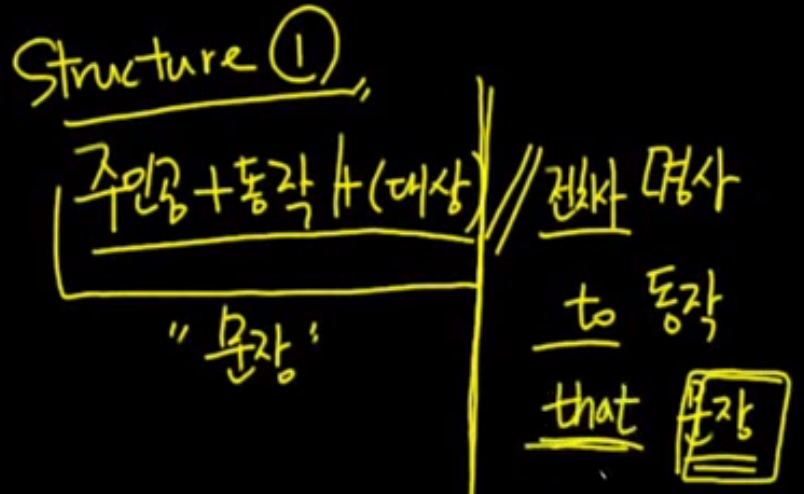 Structure ①
주인공 + 동작 + (대상) // 전치사 명사
to 동작
"문장"
that 문장